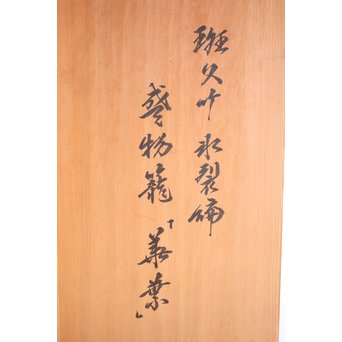 斑久竹氷裂編
盛物籠「華葉」